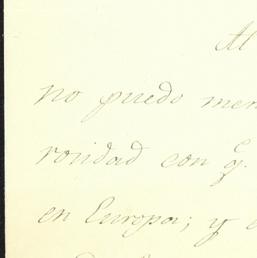 Al
no puedo men
rosidad con q.
en Europa; y